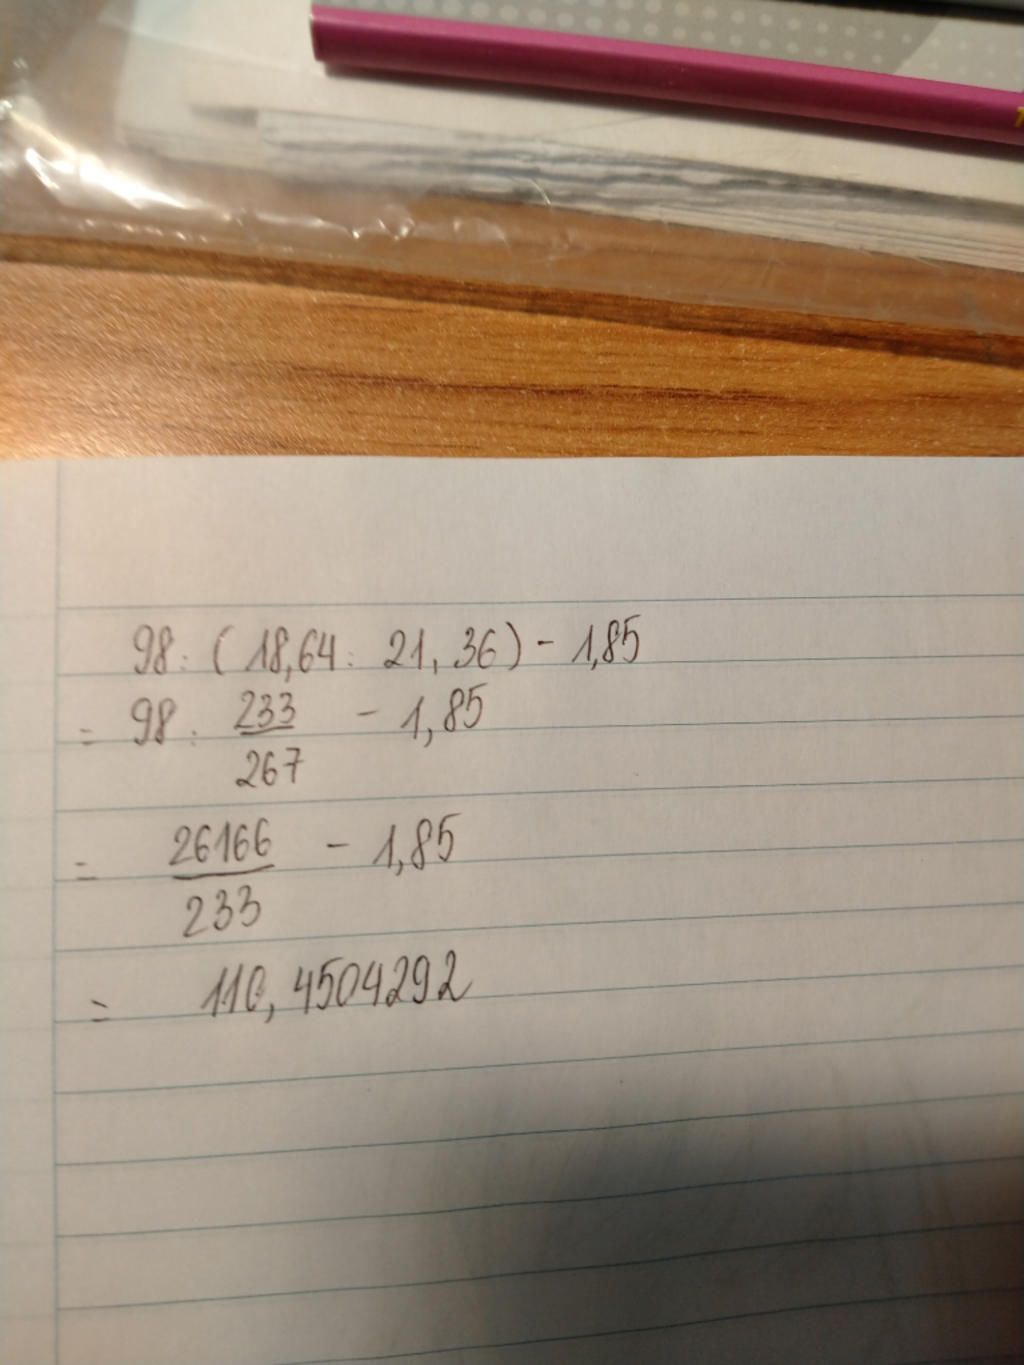 98 : ( 18,64 : 21,36 ) - 1,85
= 98 : 233/267 - 1,85
= 26166/233 - 1,85
= 110,4504292